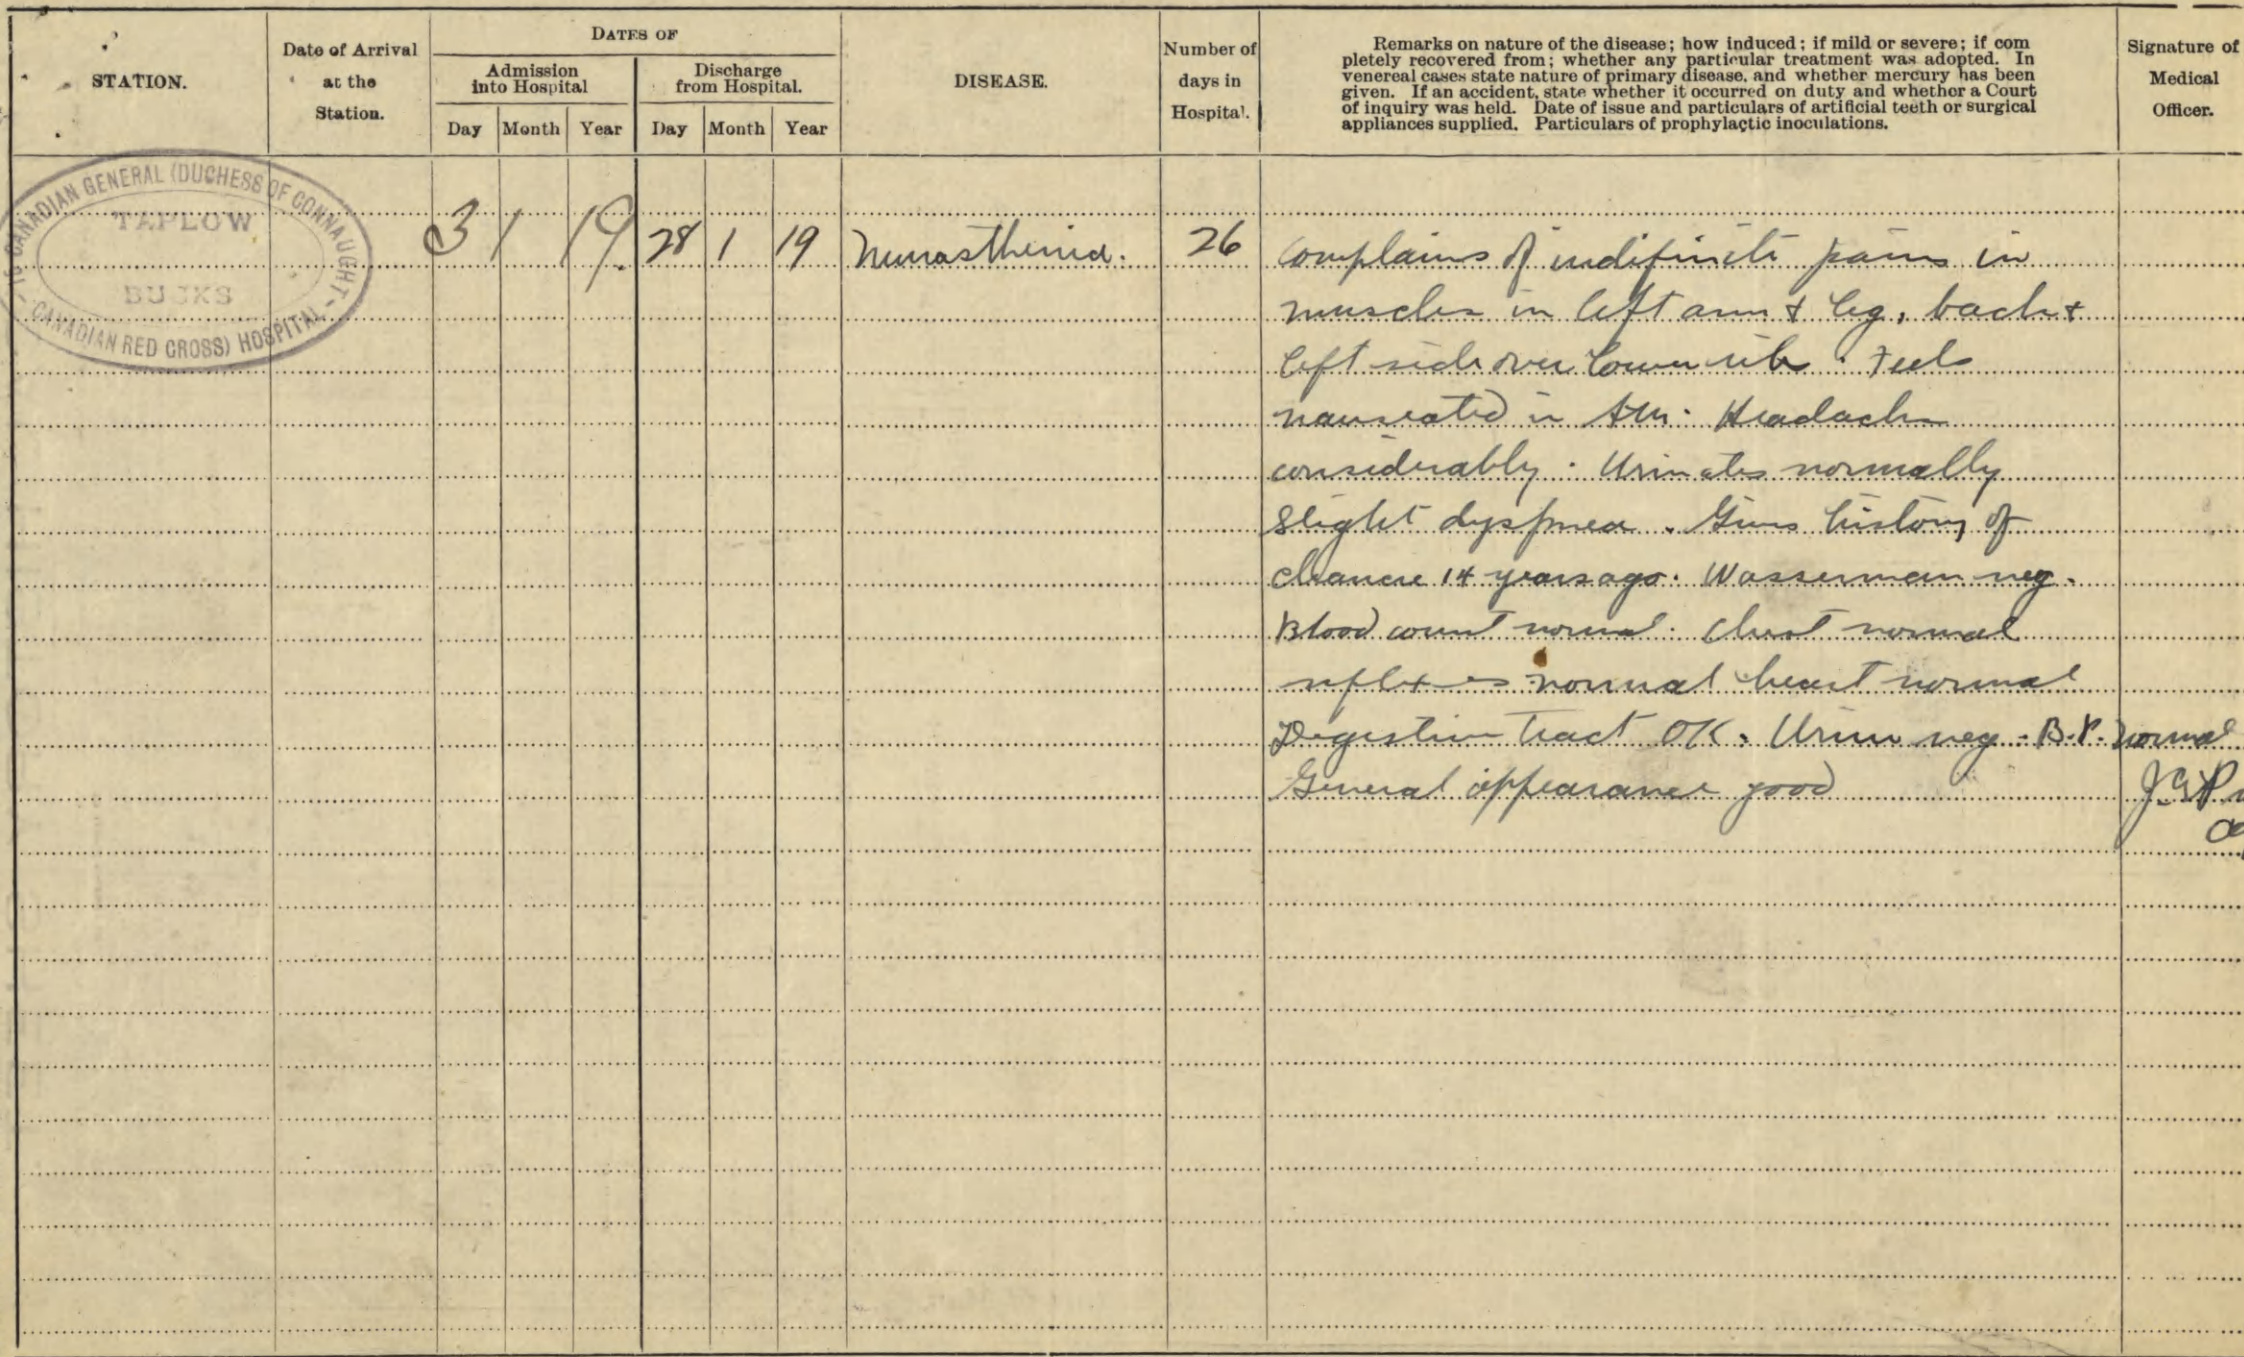 STATION.
Date of Arrival
at the
Station.
DATES OF
Admission
into Hospital
Discharge
from Hospital.
Day Month Year Day Month Year
DISEASE.
Number of
days in
Hospital.
Remarks on nature of the disease; how induced; if mild or severe; if com
pletely recovered from; whether any particular treatment was adopted. In
venereal cases state nature of primary disease, and whether mercury has been
given. If an accident, state whether it occurred on duty and whether a Court
of inquiry was held. Date of issue and particulars of artificial teeth or surgical
appliances supplied. Particulars of prophylactic inoculations.
Signature of
Medical
Officer.
CANADIAN GENERAL (DUCHESS OF CONNAUGHT -
TAPLOW
BUCKS
CANADIAN RED CROSS) HOSPITAL
3 1 19 28 1 19 Neurasthenia. 26 Complains of indefinite pains in
muscles in left arm & leg, back &
left side over lower ribs. Feels
nauseated in AM. Headache
considerably. Urinates normally
Slight dyspnea. Gives history of
chancre 14 years ago. Wasserman neg.
Blood count normal. Chest normal
reflexes normal heart normal
Digestive tract OK. Urine neg. B.P. normal
General appearance good